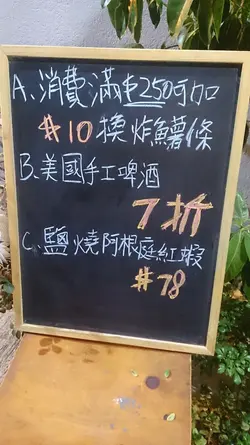 A、消費滿$250可加
$10換炸薯條
B、美國手工啤酒
7折
C、鹽燒阿根庭紅蝦
$78